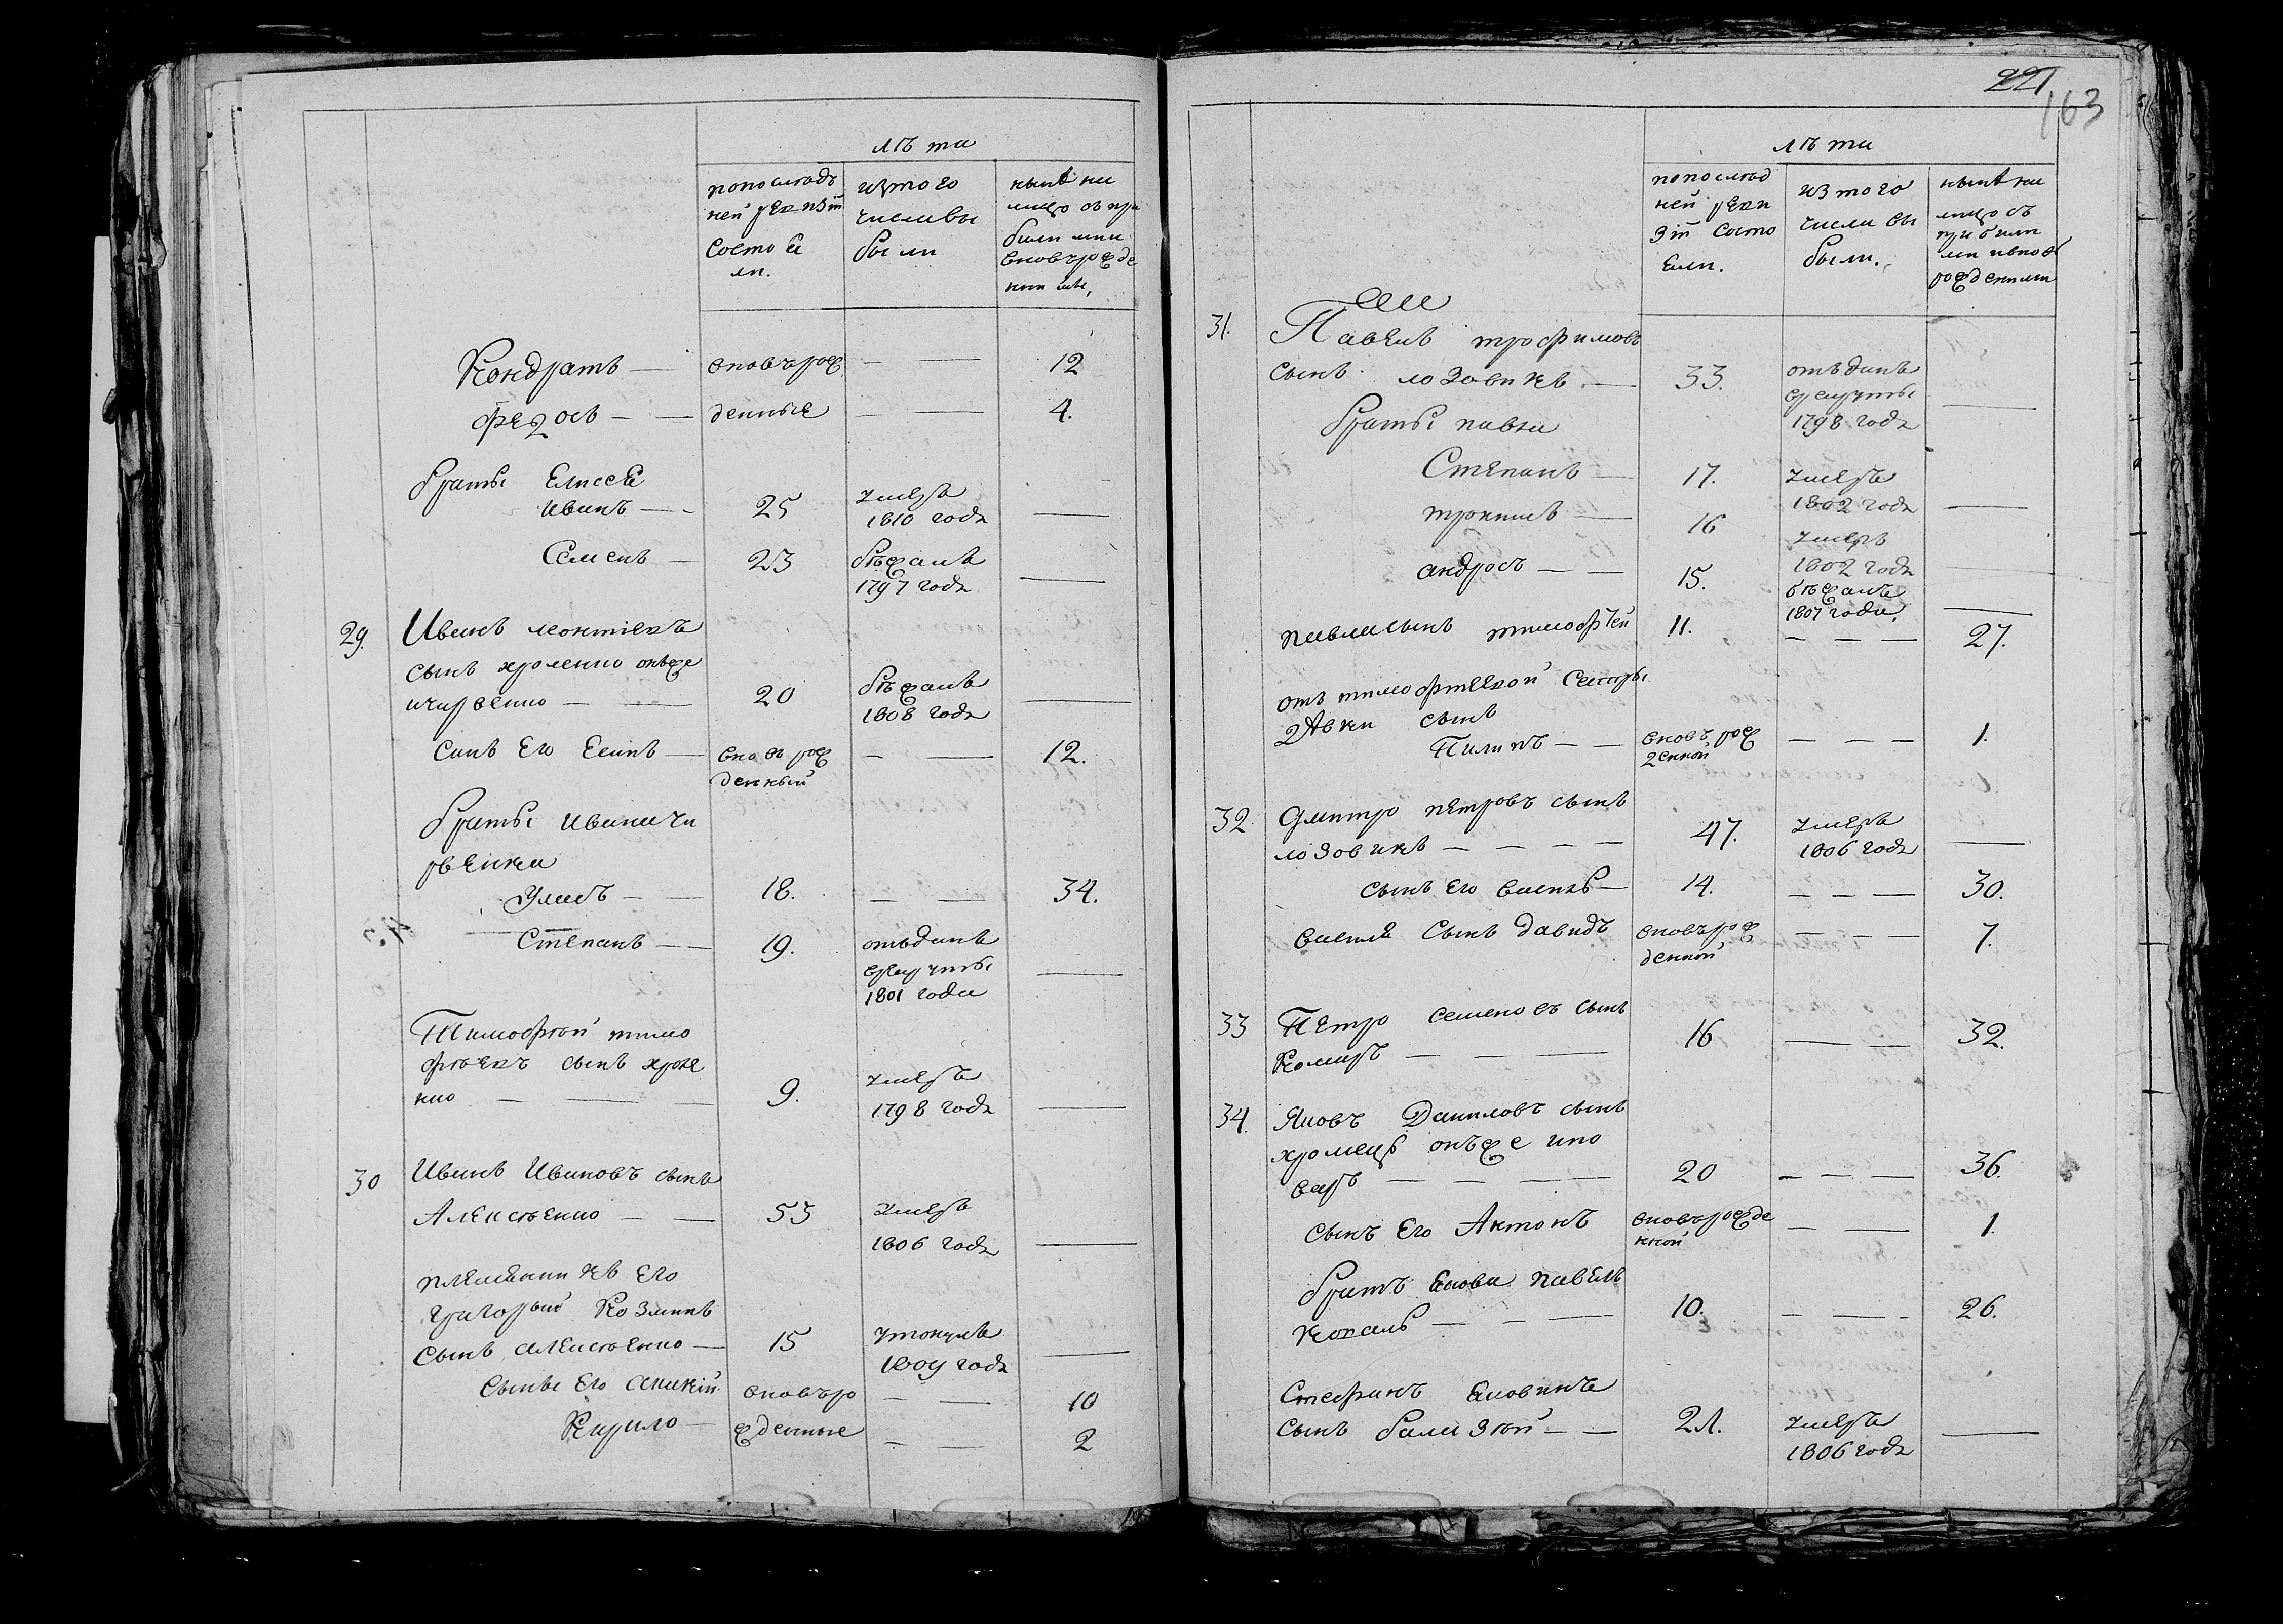 лѣта
попослѣд
ней ревизіи
состоя
ли.
изтого
числавы
были
нынѣ на
лицо съ при
былыми
вновърожде
ными,
Кондратъ — вновърож — — 12
Федосъ — — денные — — 4.
братья Елисея
Иванъ — 25 умеръ 1810 года —
Семенъ — 23 бѣжалъ 1797 года —
29. Иванъ
сынъ хроленко онъже
— — 20 бѣжалъ 1808 года —
Синъ Его Есипъ — вновъ рож денный — — 12.
братья Ивана Чи
рвенка
Уласъ — — 18. — — 34.
Степанъ — — 19. отъданъ врекруты 1801 года —
Тимофѣй тимо
фѣевъ сынъ хроле
нко — — — 9. умеръ 1798 года —
30 Иванъ Ивановъ сынъ
Алексѣенко — — 53 умеръ 1806 года —
племенникъ Его
григорый Козминъ
Сынъ алексѣенко — 15 утонулъ 1809 года —
Сыны Его аникій вновъро — — 10
Кирило — жденные — — 2
221
163
лѣта
попослѣд
ней реви
зіи состо
яли.
изтого
числа вы
были.
нынѣ на
лицо съ
прибылы
ми ивновъ
рожденными
31. Павелъ трофимовъ
сынъ лозовикъ — 33. отъданъ врекруты 1798 года —
братья павла
Степанъ — 17. умеръ 1802 года —
16 умеръ 1802 года —
андросъ — — 15. бѣжалъ 1807 года, —
павла сынъ тимофѣй 11. — — — 27.
отъ тимофѣевой Сестры
сынъ
Пилипъ — — вновъ рож денной — — — 1.
32 Дмитро петровъ сынъ
лозовикъ — — — — 47. умеръ 1806 года —
сынъ Его василь — 14. — — — 30.
василя Сынъ давидъ вновърож денной — — — 7.
33 Петро семеновъ сынъ
Комаръ — — — 16 — — 32.
34. Яковъ Даниловъ сынъ
хромецъ онъже ико
варъ — — — — 20 — — — 36.
сынъ Его Антонъ вновърожде нной — — 1.
братъ Якова павелъ
коваль — — — 10. — — — 26.
Стефанъ Яковинъ
сынъ — — 21. умеръ 1806 года —